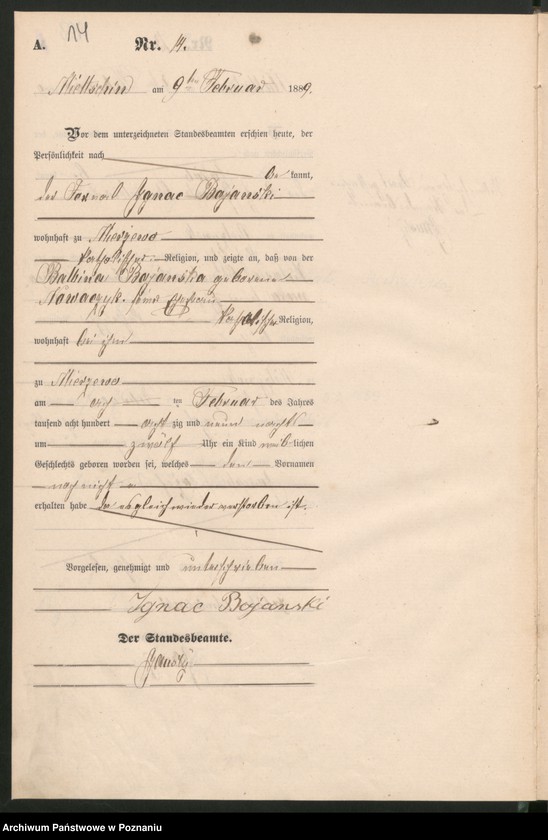 14
A. Nr. 14.
Mieltschin am 9ten Februar 1889.
Vor dem unterzeichneten Standesbeamten erschien heute, der
Persönlichkeit nach
be kannt,
der Fornal Ignac Bojanski
wohnhaft zu Mierzewo
katholischer Religion, und zeigte an, daß von der
Balbina Bojanska geborene
Nowaczyk seiner Ehefrau
katholischer Religion,
wohnhaft bei ihm
zu Mierzewo
am acht ten Februar des Jahres
tausend acht hundert acht zig und neun nachts
um zwölf Uhr ein Kind weiblichen
Geschlechts geboren worden sei, welches den Vornamen
noch nicht
erhalten habe da es gleich wieder verstorben ist.
Vorgelesen, genehmigt und unterschrieben
Ignac Bojanski
Der Standesbeamte.
Archiwum Państwowe w Poznaniu